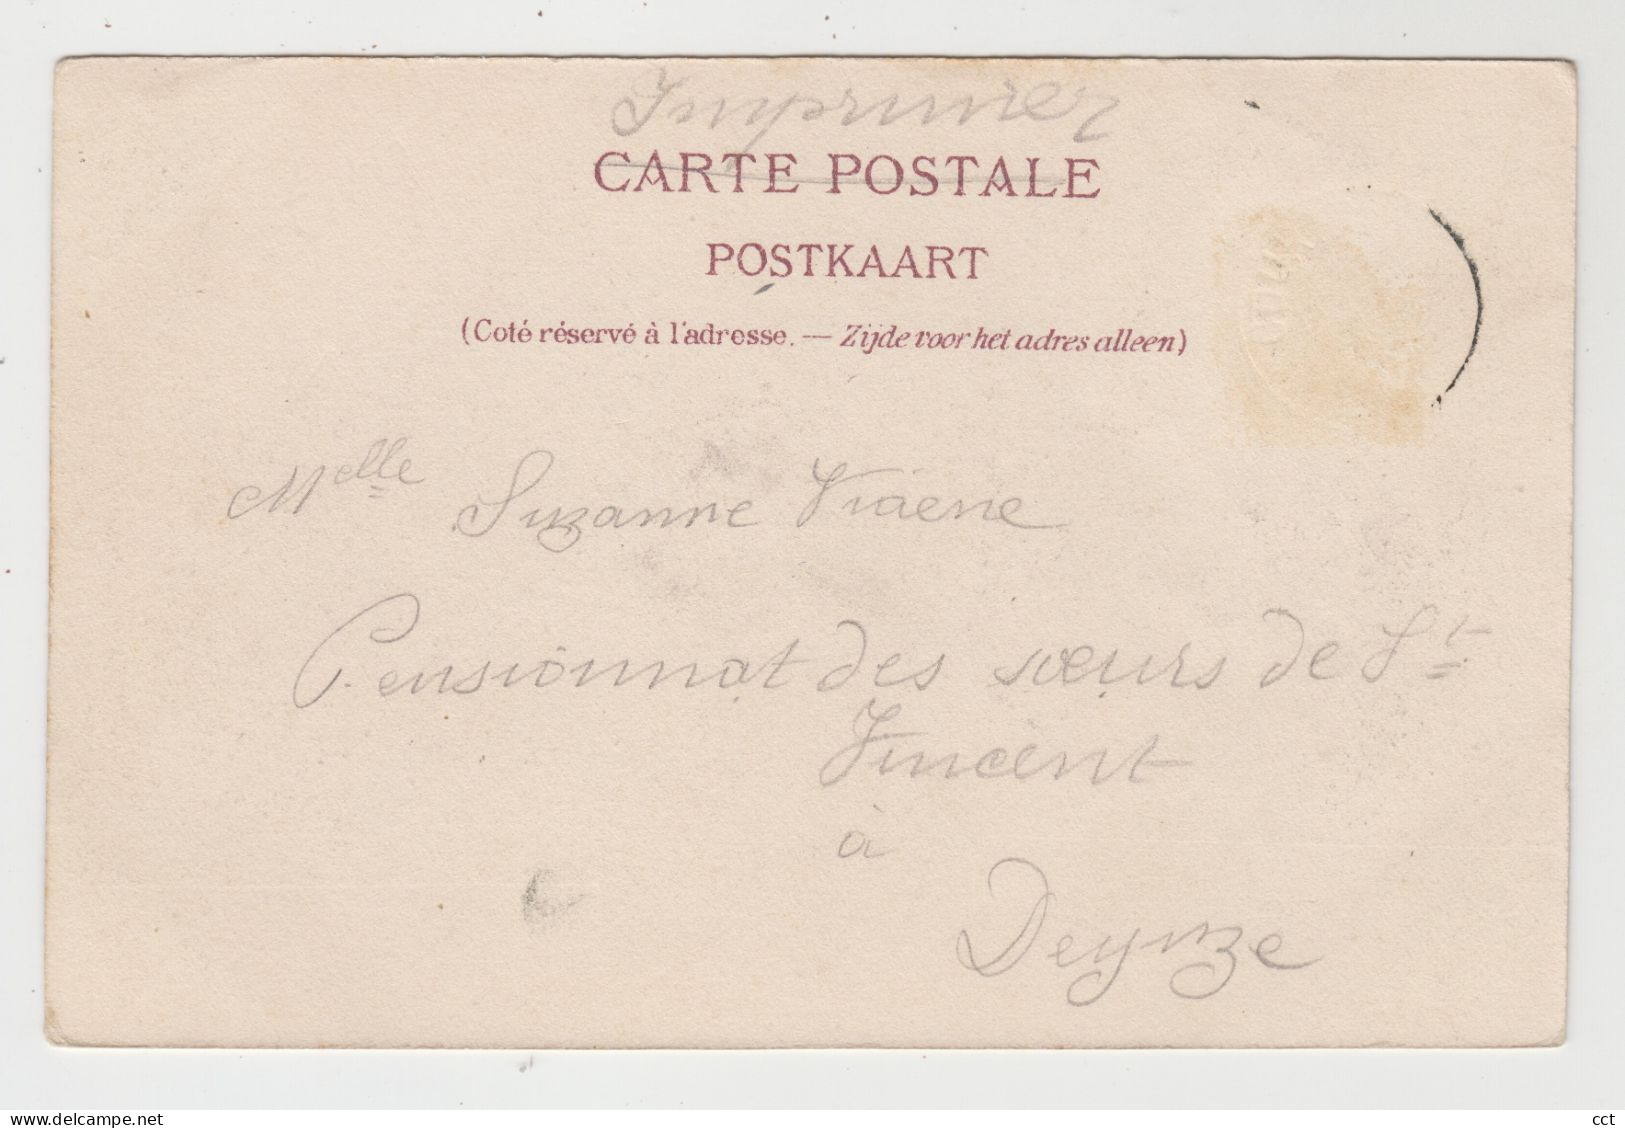 Imprimez
CARTE POSTALE
POSTKAART
(Coté réservé à l'adresse. — Zijde voor het adres alleen)
Melle Suzanne Viaene
Pensionnat des sœurs de St
Vincent
à
Deynze
www.delcampe.net
cct